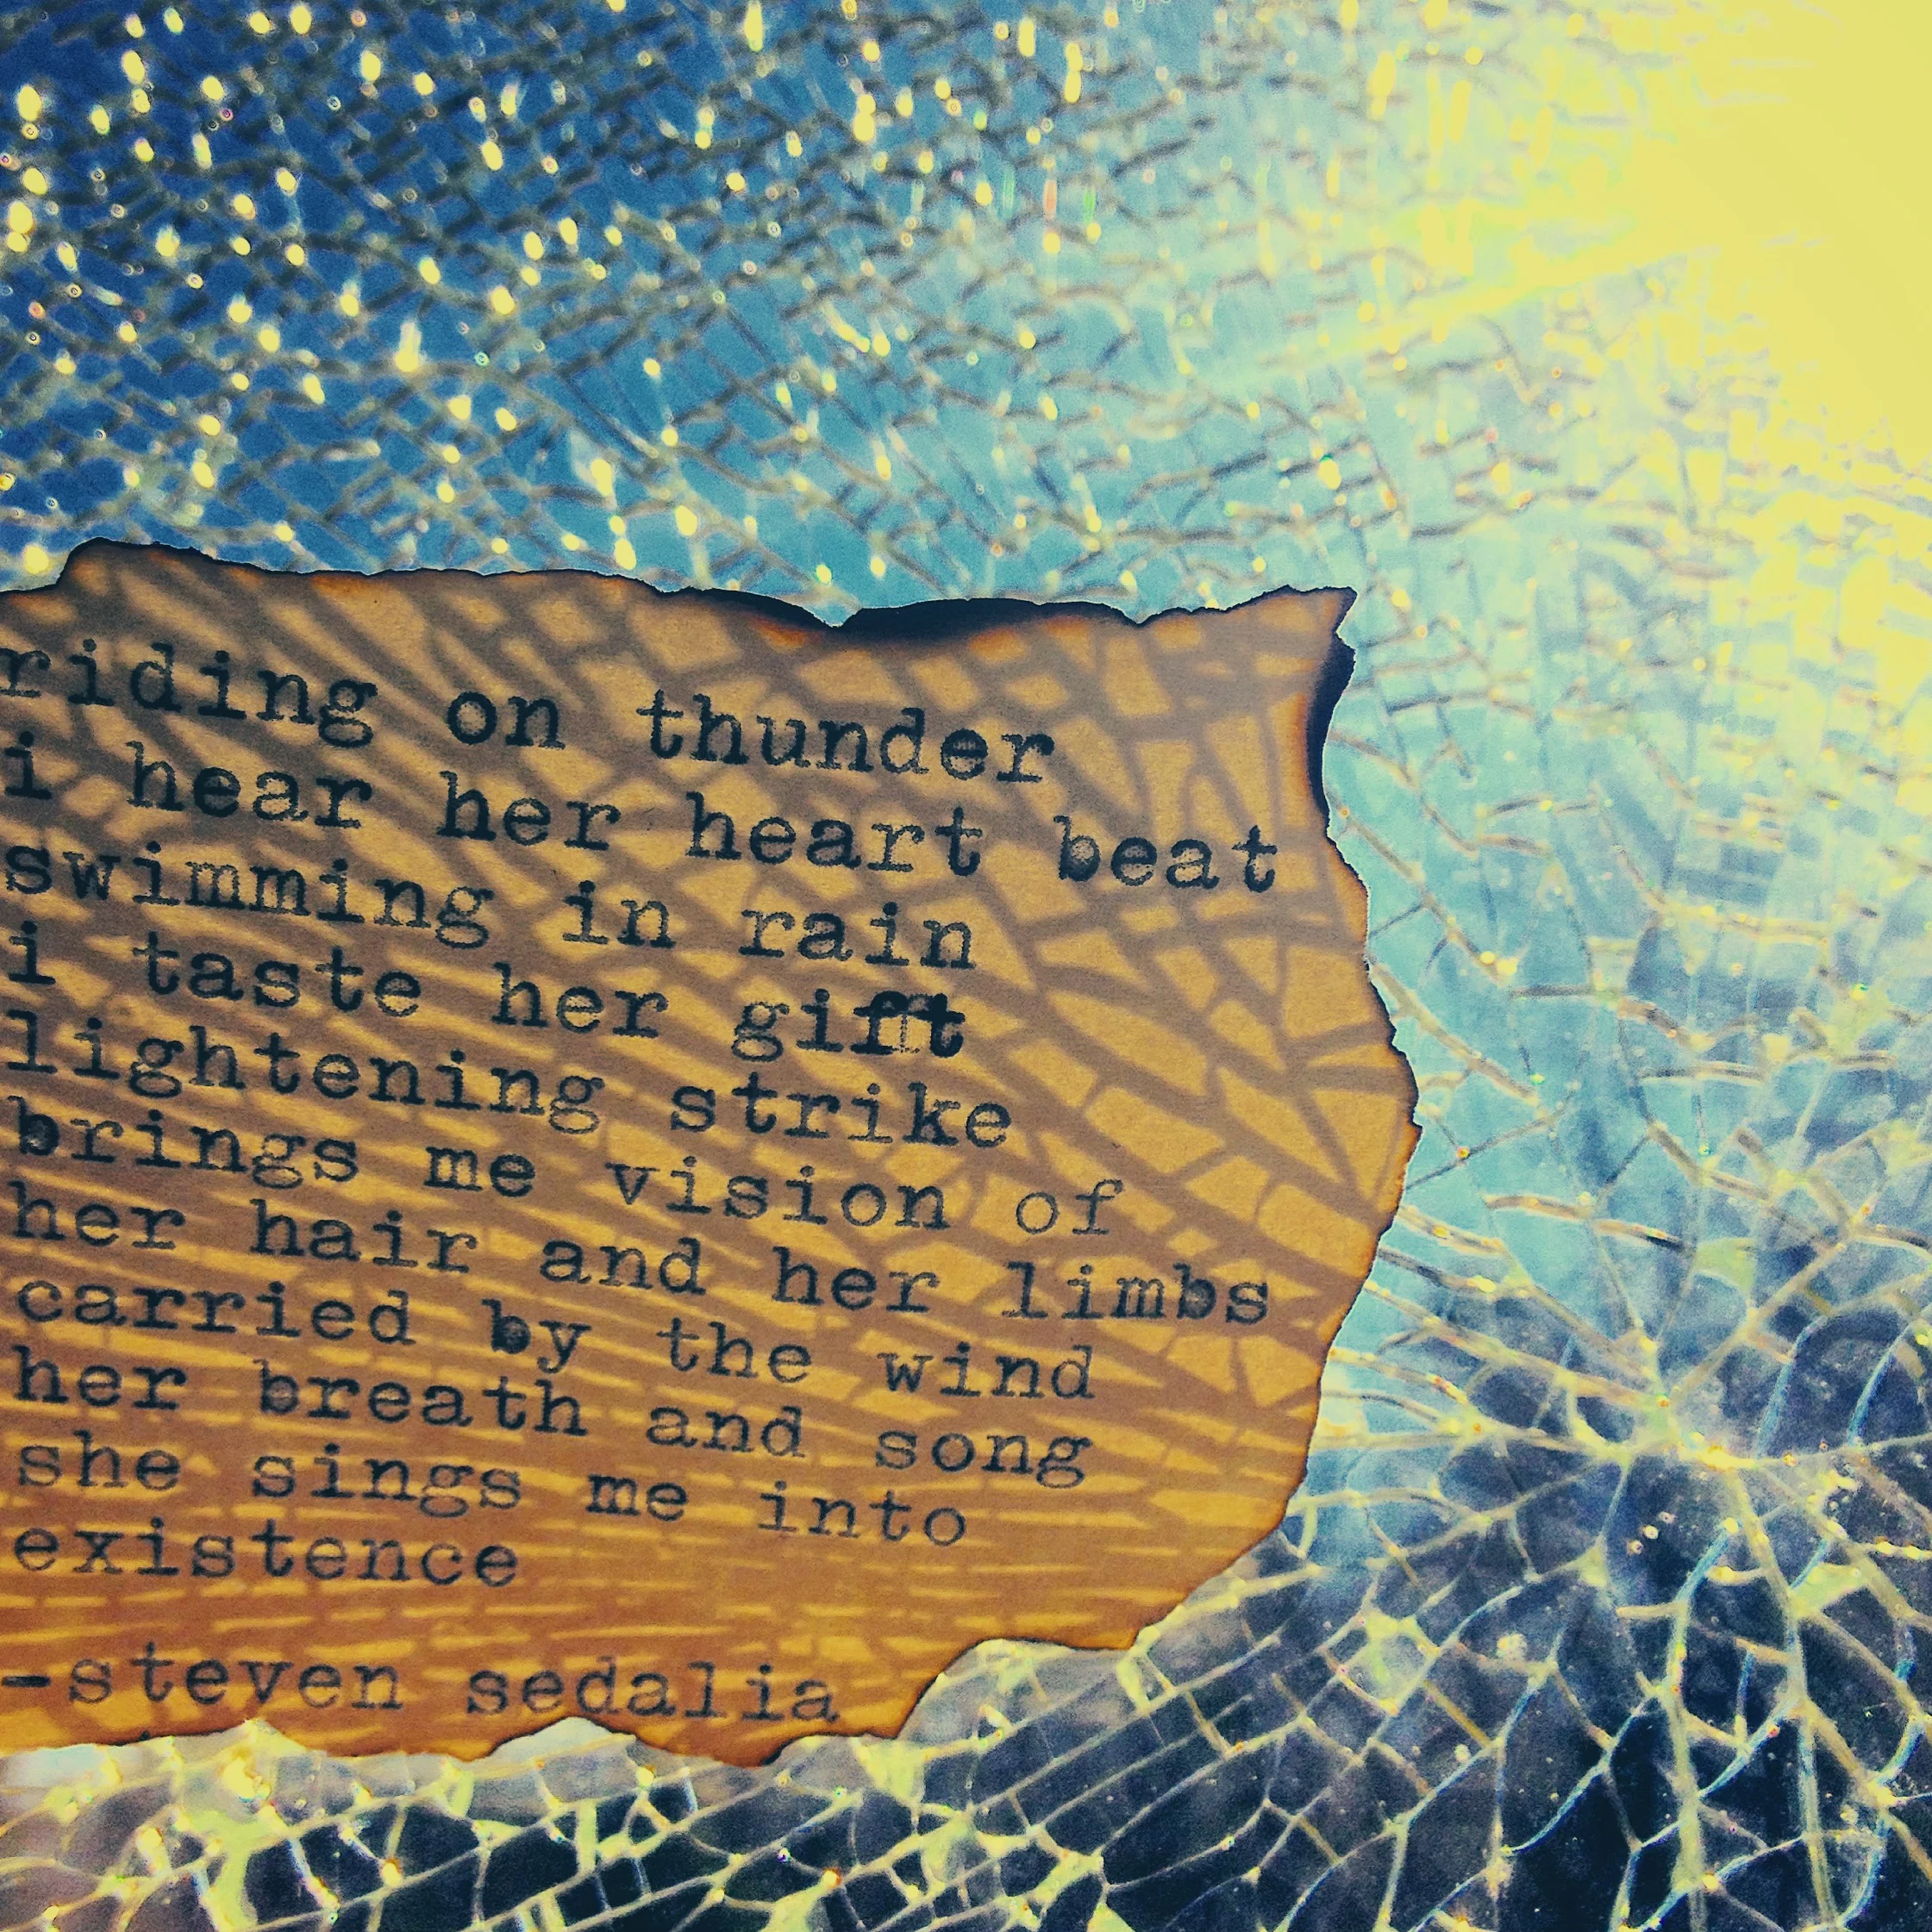 riding on thunder
i hear her heart beat
swimming in rain
i taste her gift
lightening strike
brings me vision of
her hair and her limbs
carried by the wind
her breath and song
she sings me into
existence
-steven sedalia